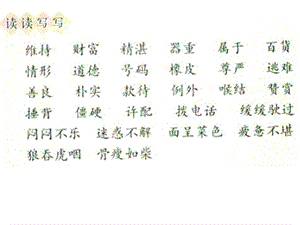 读读写写
维持 财富 精湛 器重 属于 百货
情形 道德 号码 橡皮 尊严 逃难
善良 朴实 款待 例外 喉结 赞赏
捶背 僵硬 许配 拨电话 缓缓驶过
闷闷不乐 迷惑不解 面呈菜色 疲惫不堪
狼吞虎咽 骨瘦如柴